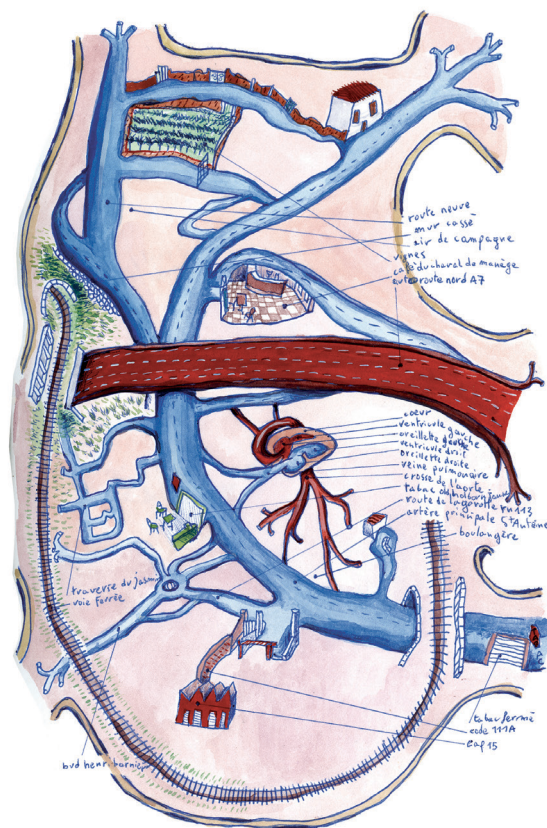 route neuve
mur cassé
air de campagne
vignes
café du cheval de manège
autoroute nord A7
coeur
ventricule gauche
oreillette gauche
ventricule droit
oreillette droite
veine pulmonaire
crosse de l'aorte
tabac
route de la gavotte RN 113
artère principale St Antoine
boulangère
traverse du jasmin
voie ferrée
bvd henri barnier
tabac fermé
code 111A
cap 15